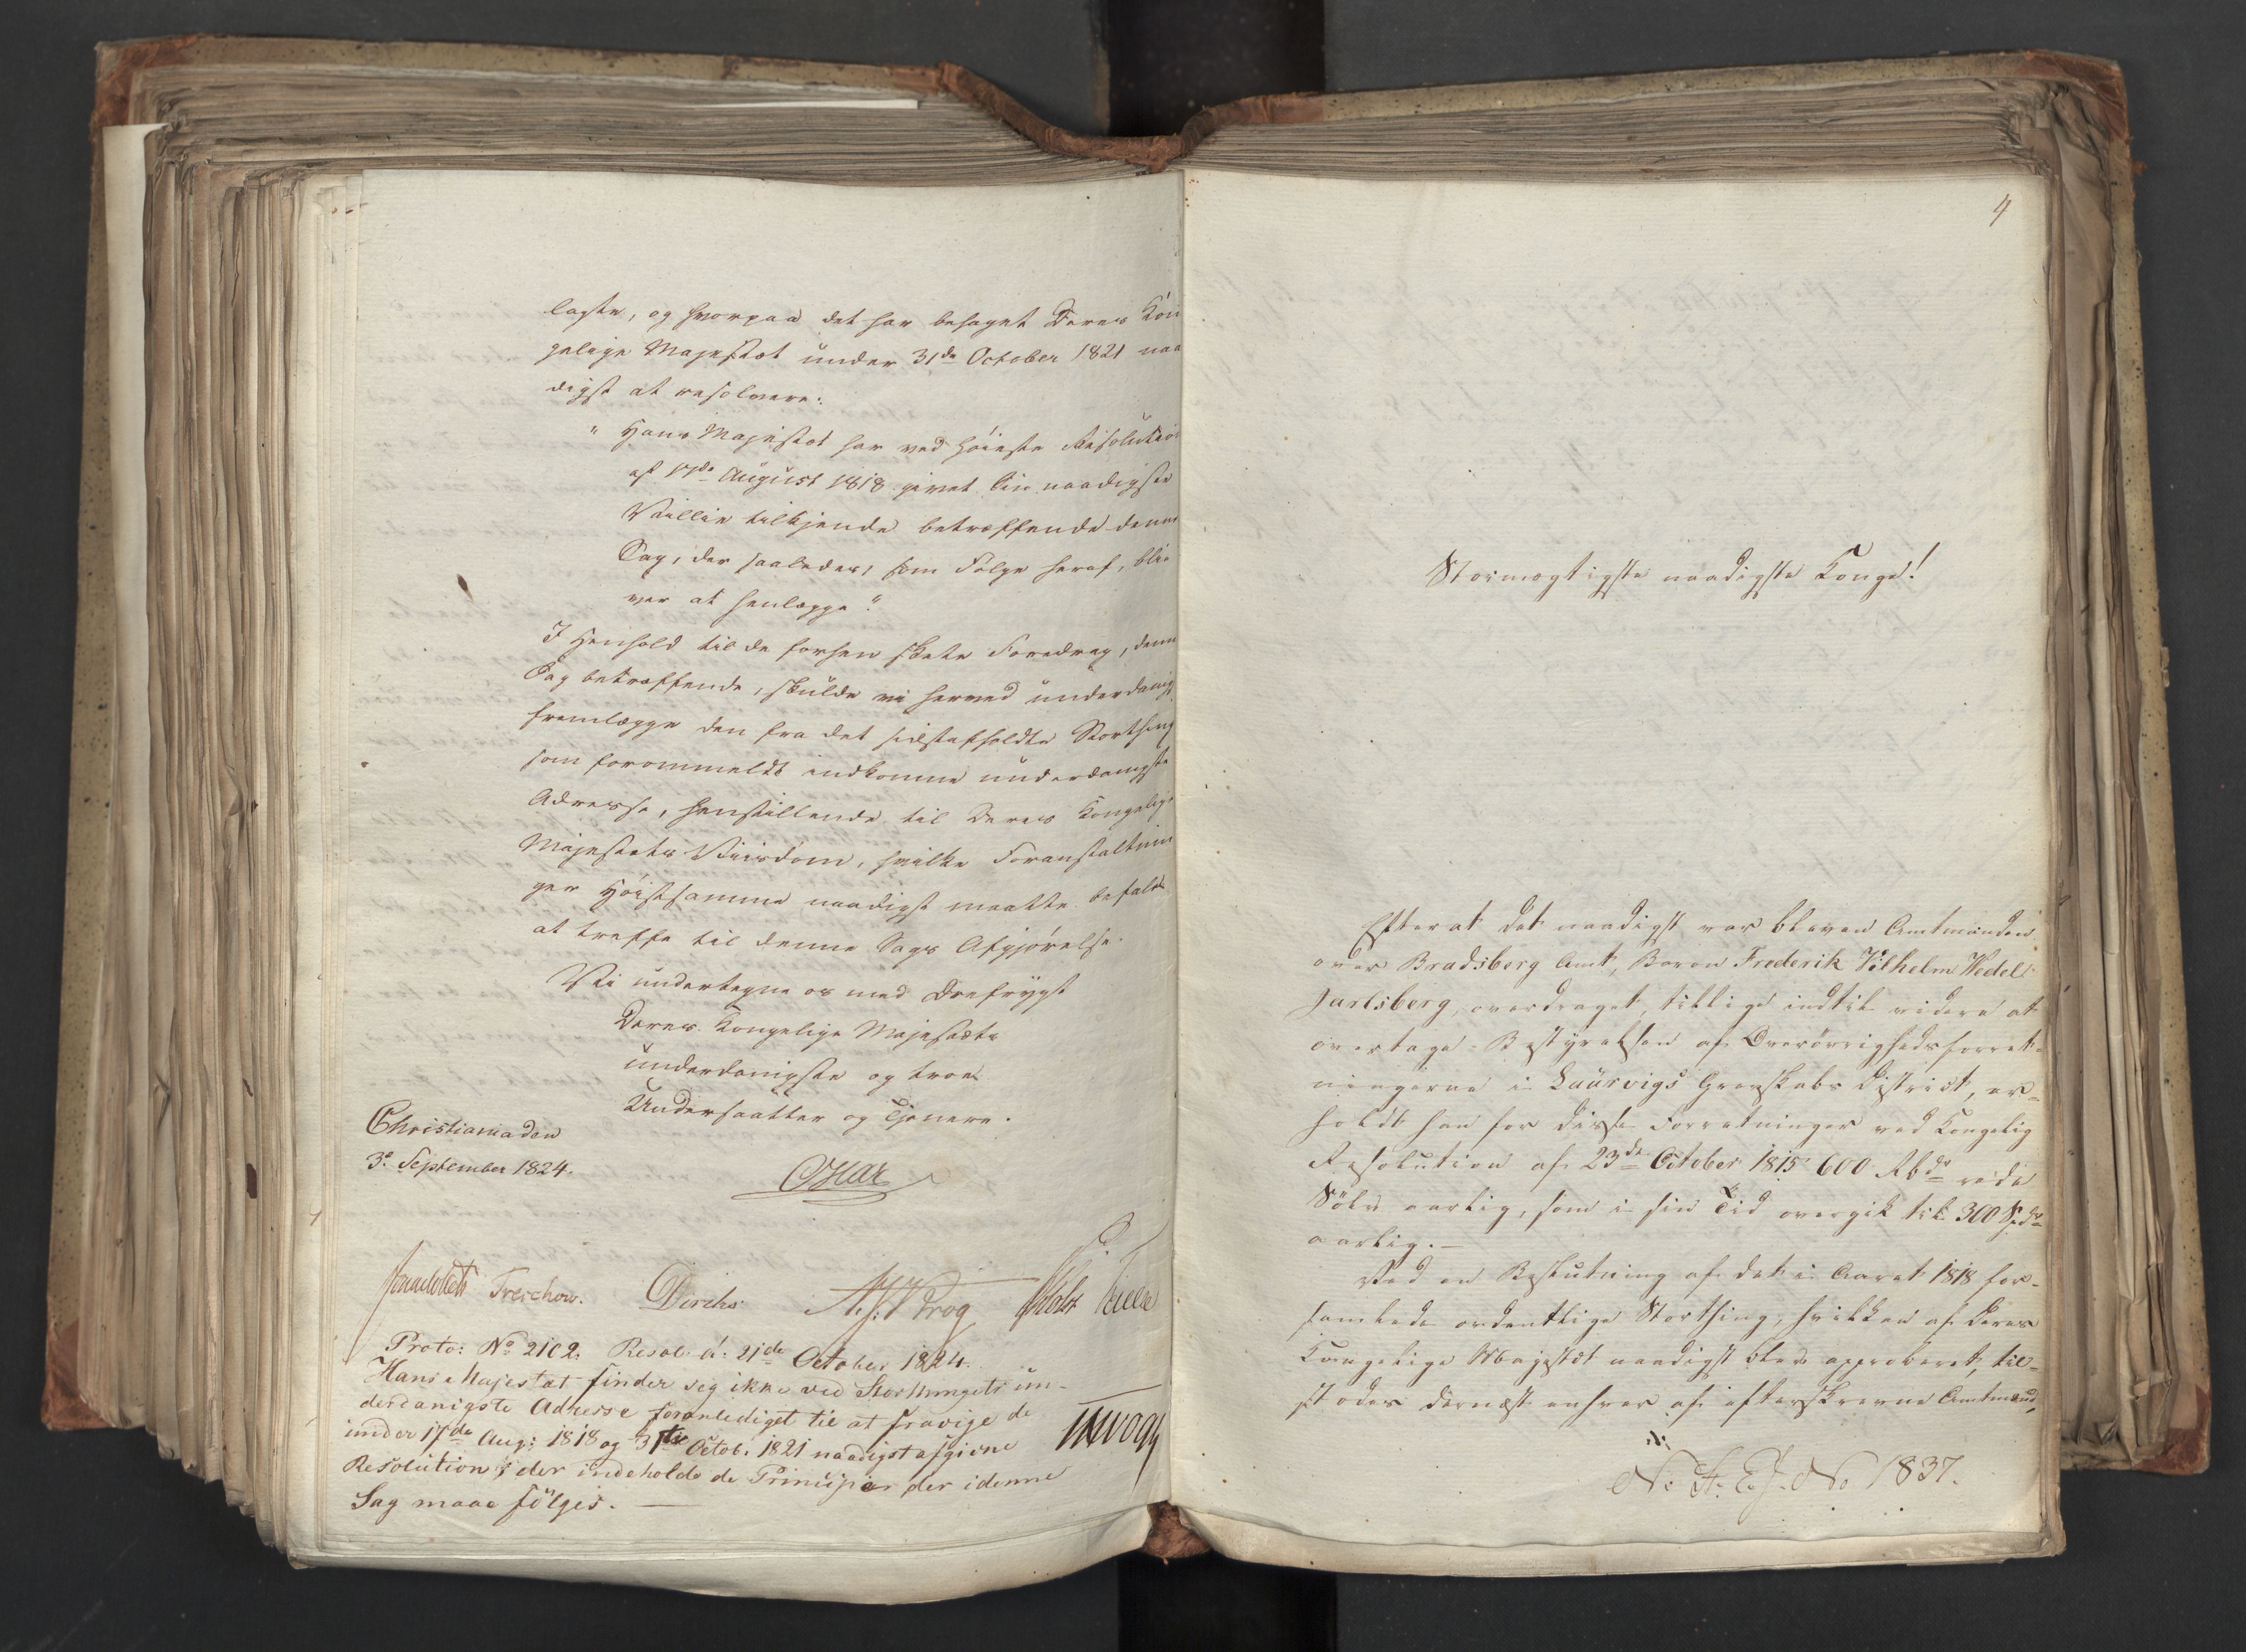 lagte, og hvorpaa det har behaget Deres Kön
gelige Majestæt under 31de October 1821 naa
digst at resolvere:
" Hans Majestæt har ved höieste Resolution
af 17de August 1818 givet Sin naadigste
Villie tilkjende betræffende denne
Sag, der saaledes, som Fölge heraf, bli
ver at henlægge".
I Henhold til de forhen skete Foredrag, denne
Sag betræffende, skulde vi herved underdanigst
fremlægge den fra det sidstafholdte Storthing
som forommeldt indkomne underdanigste
Adresse, henstillende til Deres Kongelige
Majestæts Viisdom, hvilke Foranstaltnin
ger Höistsamme naadigst maatte befale
at træffe til denne Sags Afgjörelse.
Vi undertegne os med Ærefrygt
Deres Kongelige Majestæts
underdanigste og troe
Undersaatter og Tjenere.
Christiania den
3e September 1824.
Oscar
Treschow. Diriks
Proto: No 2102. Resol. d. 21de October 1824.
Hans Majestæt finder sig ikke ved Storthingets un-
derdanigste Adresse foranlediget til at fravige de
under 17de Aug: 1818 og 31te Octob. 1821 naadigst afgivne
Resolutioner, der indeholde de Principer der i denne
Sag maae fölges.
4
Stormægtigste naadigste Konge!
Efterat det naadigst var bleven Amtmanden
over Bradsberg Amt, Baron Frederik Vilhelm Wedel
Jarlsberg, overdraget, tillige indtil videre at
overtage Bestyrelsen af Överövrighedsforret-
ningerne i Laurvigs Grevskabs District, er-
holdt han for disse Forretninger ved Kongelig
Resolution af 23de October 1815 600 Rbdr rede
Sölv aarlig, som i sin Tid overgik til 300 Spdr
aarlig.
Ved en Beslutning af det i Aaret 1818 for-
samlede ordentlige Storthing, hvilken af Deres
Kongelige Majestæt naadigst blev approberet, til-
stodes dernæst enhver af efterskrevne Amtmænd,
No 1837.